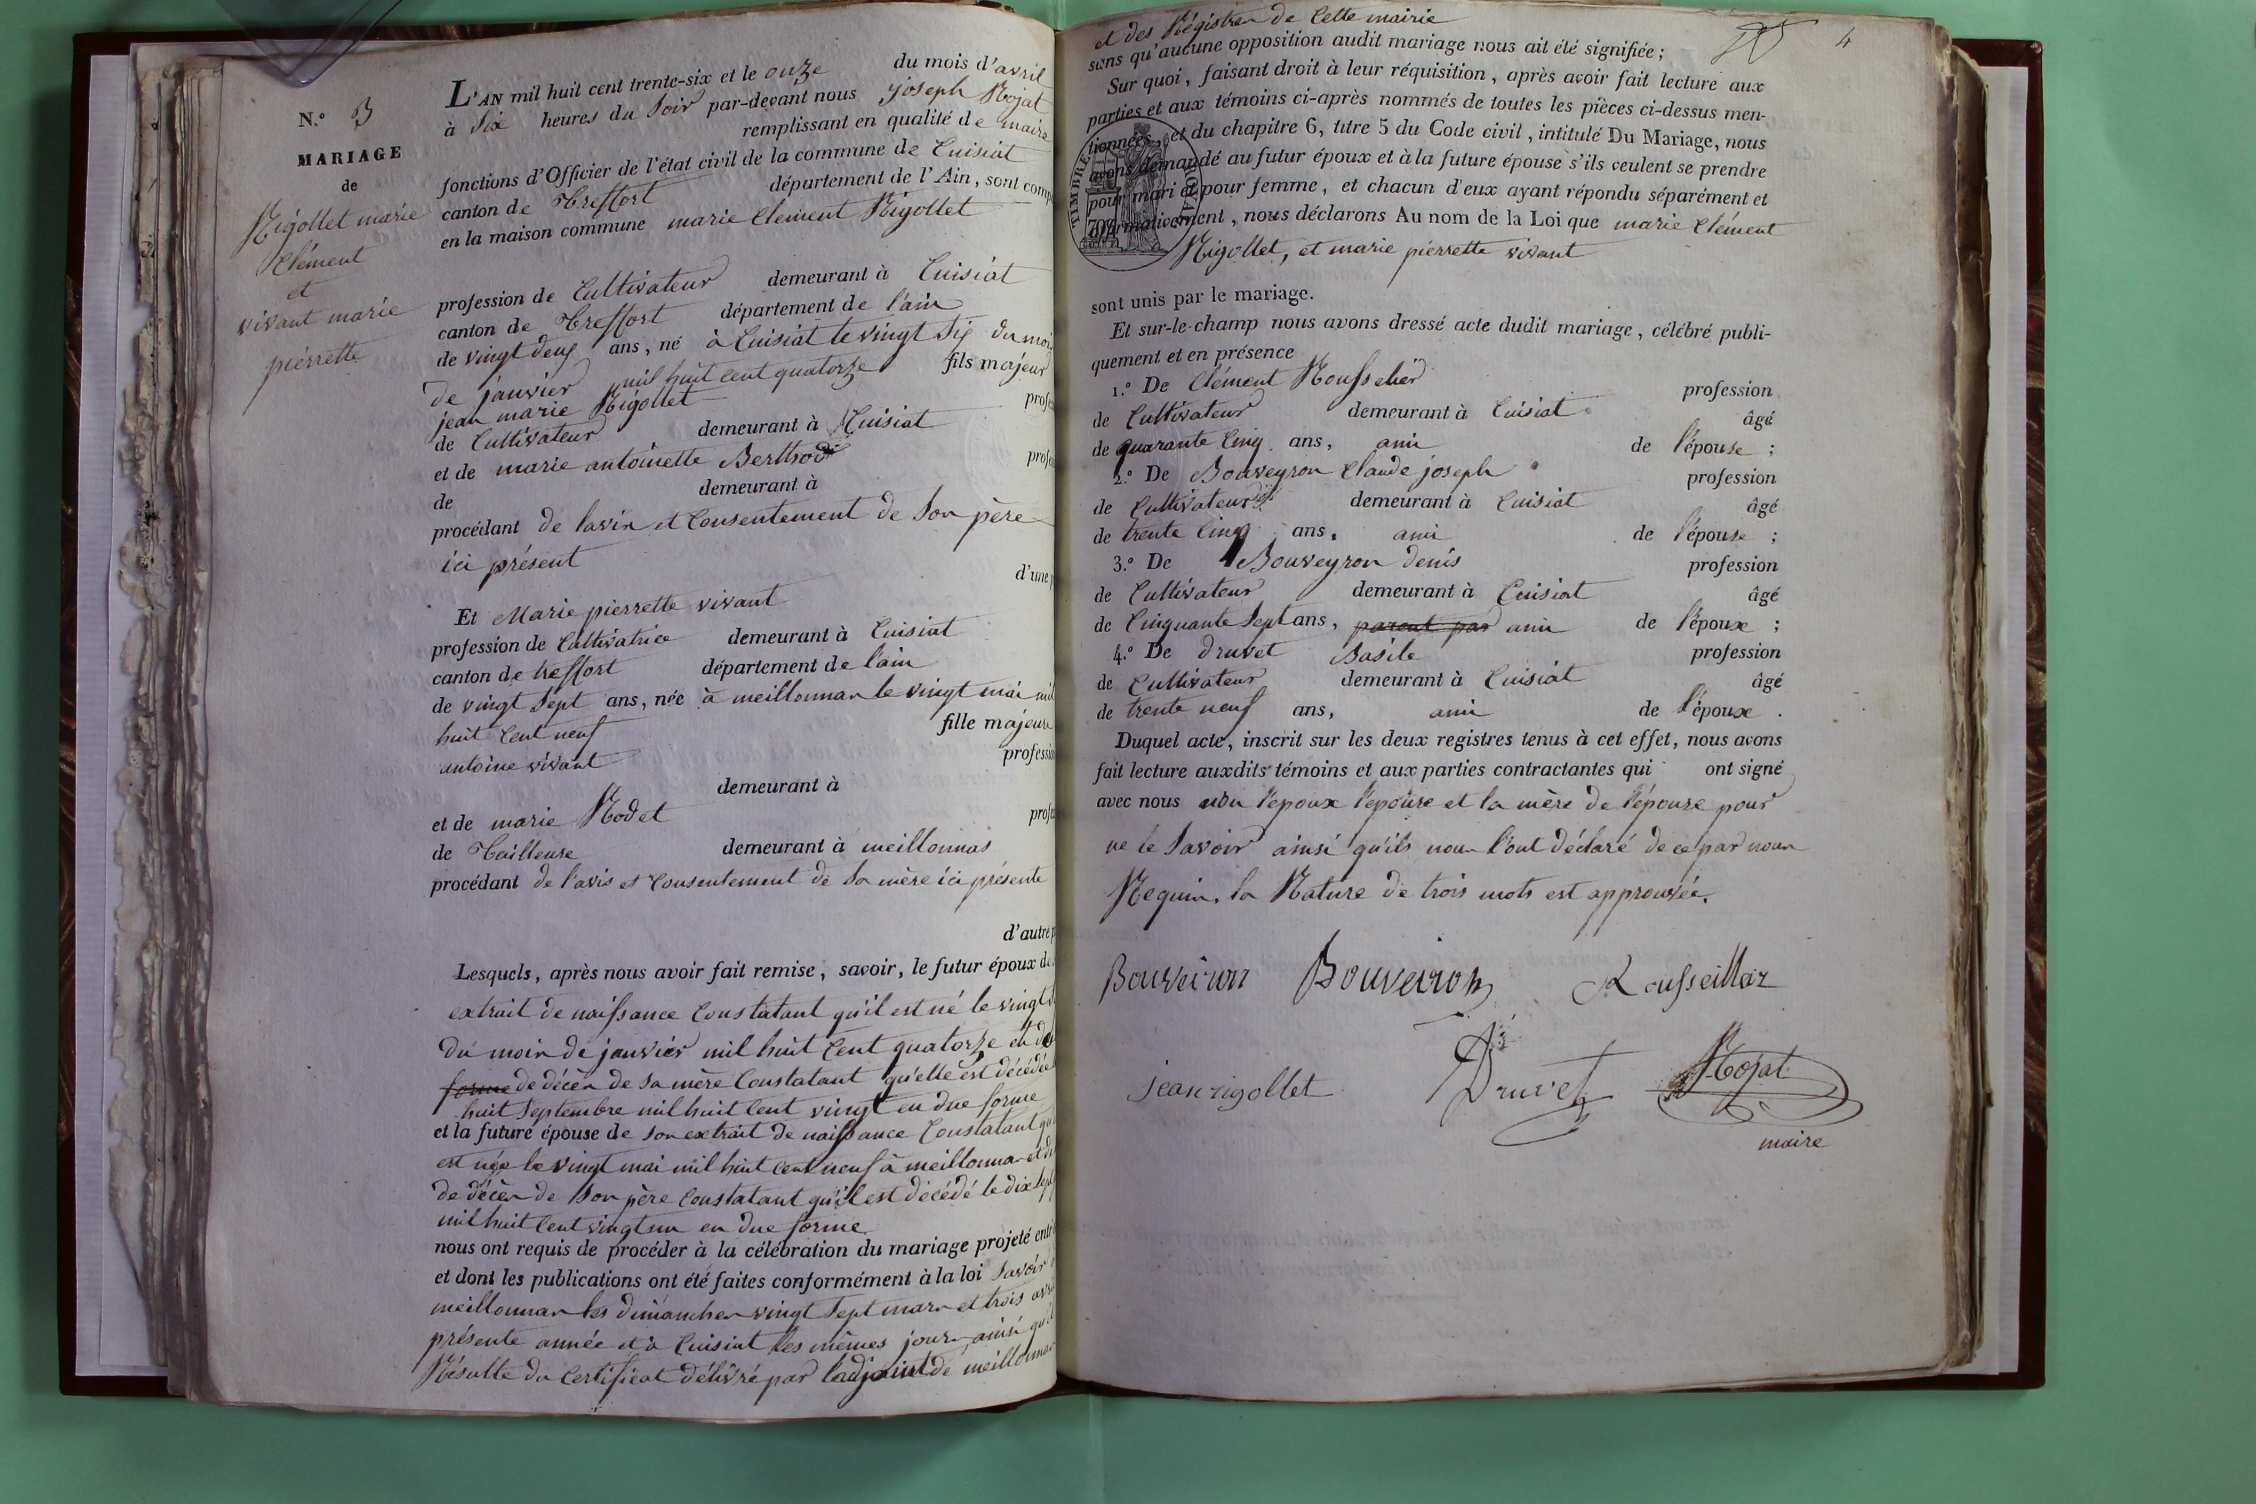 N.° 3
MARIAGE
de
Rigollet marie
Clément
et
vivant marie
pierrette
L'AN mil huit cent trente-six et le onze du mois d'avril
à Six heures du Soir par-devant nous joseph Rojat
remplissant en qualité de maire
fonctions d'Officier de l'état civil de la commune de Cuisiat
canton de Treffort département de l'Ain, sont comp
en la maison commune marie Clement Rigollet
profession de Cultivateur demeurant à Cuisiat
canton de Treffort département de l'ain
de vingt deux ans, né à Cuisiat le vingt six du mois
de janvier mil huit cent quatorze fils majeur
jean marie Rigollet profes
de Cultivateur demeurant à Cuisiat
et de marie antoinette Berthod profes
de demeurant à
procédant de lavis et Consentement de Son père
ici présent
d'une p
Et Marie pierrette vivant
profession de Cultivatrice demeurant à Cuisiat
canton de treffort département de l'ain
de vingt Sept ans, née à meillonnas le vingt mai mil
huit Cent neuf fille majeure
antoine vivant profession
demeurant à
et de marie Rodet profes
de Tailleuse demeurant à meillonnas
procédant de l'avis et Consentement de Sa mère ici présente
d'autre p
Lesquels, après nous avoir fait remise, savoir, le futur époux de
extrait de naissance Constatant qu'il est né le vingt
du mois de janvier mil huit Cent quatorze et de
forme de décès de sa mère Constatant qu'elle est décédée
huit Septembre mil huit Cent vingt en due forme
et la future épouse de Son extrait de naissance Constatant qu
est née le vingt mai mil huit Cent neuf à meillonnas et d
de décès de Son père Constatant qu'il est décédé le dix Sept
mil huit Cent vingt un en due forme
nous ont requis de procéder à la célébration du mariage projeté entre
et dont les publications ont été faites conformément à la loi Savoir
meillonnas les dimanches vingt Sept mars et trois avri
présente année et à Cuisiat les mêmes jours ainsi qu'il
Résulte du Certificat délivré par l'adjoint de meillonnas
et des Régistres de Cette mairie
4
sans qu'aucune opposition audit mariage nous ait été signifiée;
Sur quoi, faisant droit à leur réquisition, après avoir fait lecture aux
parties et aux témoins ci-après nommés de toutes les pièces ci-dessus men-
tionnées, et du chapitre 6, titre 5 du Code civil, intitulé Du Mariage, nous
avons demandé au futur époux et à la future épouse s'ils veulent se prendre
pour mari et pour femme, et chacun d'eux ayant répondu séparément et
affirmativement, nous déclarons Au nom de la Loi que marie Clément
Rigollet, et marie pierrette vivant
TIMBRE ROYAL
sont unis par le mariage.
Et sur-le-champ nous avons dressé acte dudit mariage, célébré publi-
quement et en présence
1.° De Clément Rousselier profession
de Cultivateur demeurant à Cuisiat âgé
de quarante Cinq ans, ami de l'épouse;
2.° De Bouveyron Claude joseph profession
de Cultivateur demeurant à Cuisiat âgé
de trente Cinq ans, ami de l'épouse;
3.° De Bouveyron denis profession
de Cultivateur demeurant à Cuisiat âgé
de Cinquante Sept ans, parent par ami de l'époux;
4.° De druvet Basile profession
de Cultivateur demeurant à Cuisiat âgé
de trente neuf ans, ami de l'époux.
Duquel acte, inscrit sur les deux registres tenus à cet effet, nous avons
fait lecture auxdits témoins et aux parties contractantes qui ont signé
avec nous non l'époux l'épouse et la mère de l'épouse pour
ne le Savoir ainsi qu'ils nous l'ont déclaré de ce par nous
Requis. la Rature de trois mots est approuvée.
Bouveiron Bouveiron Rousseillaz
jean rigollet Druvet Rojat
maire